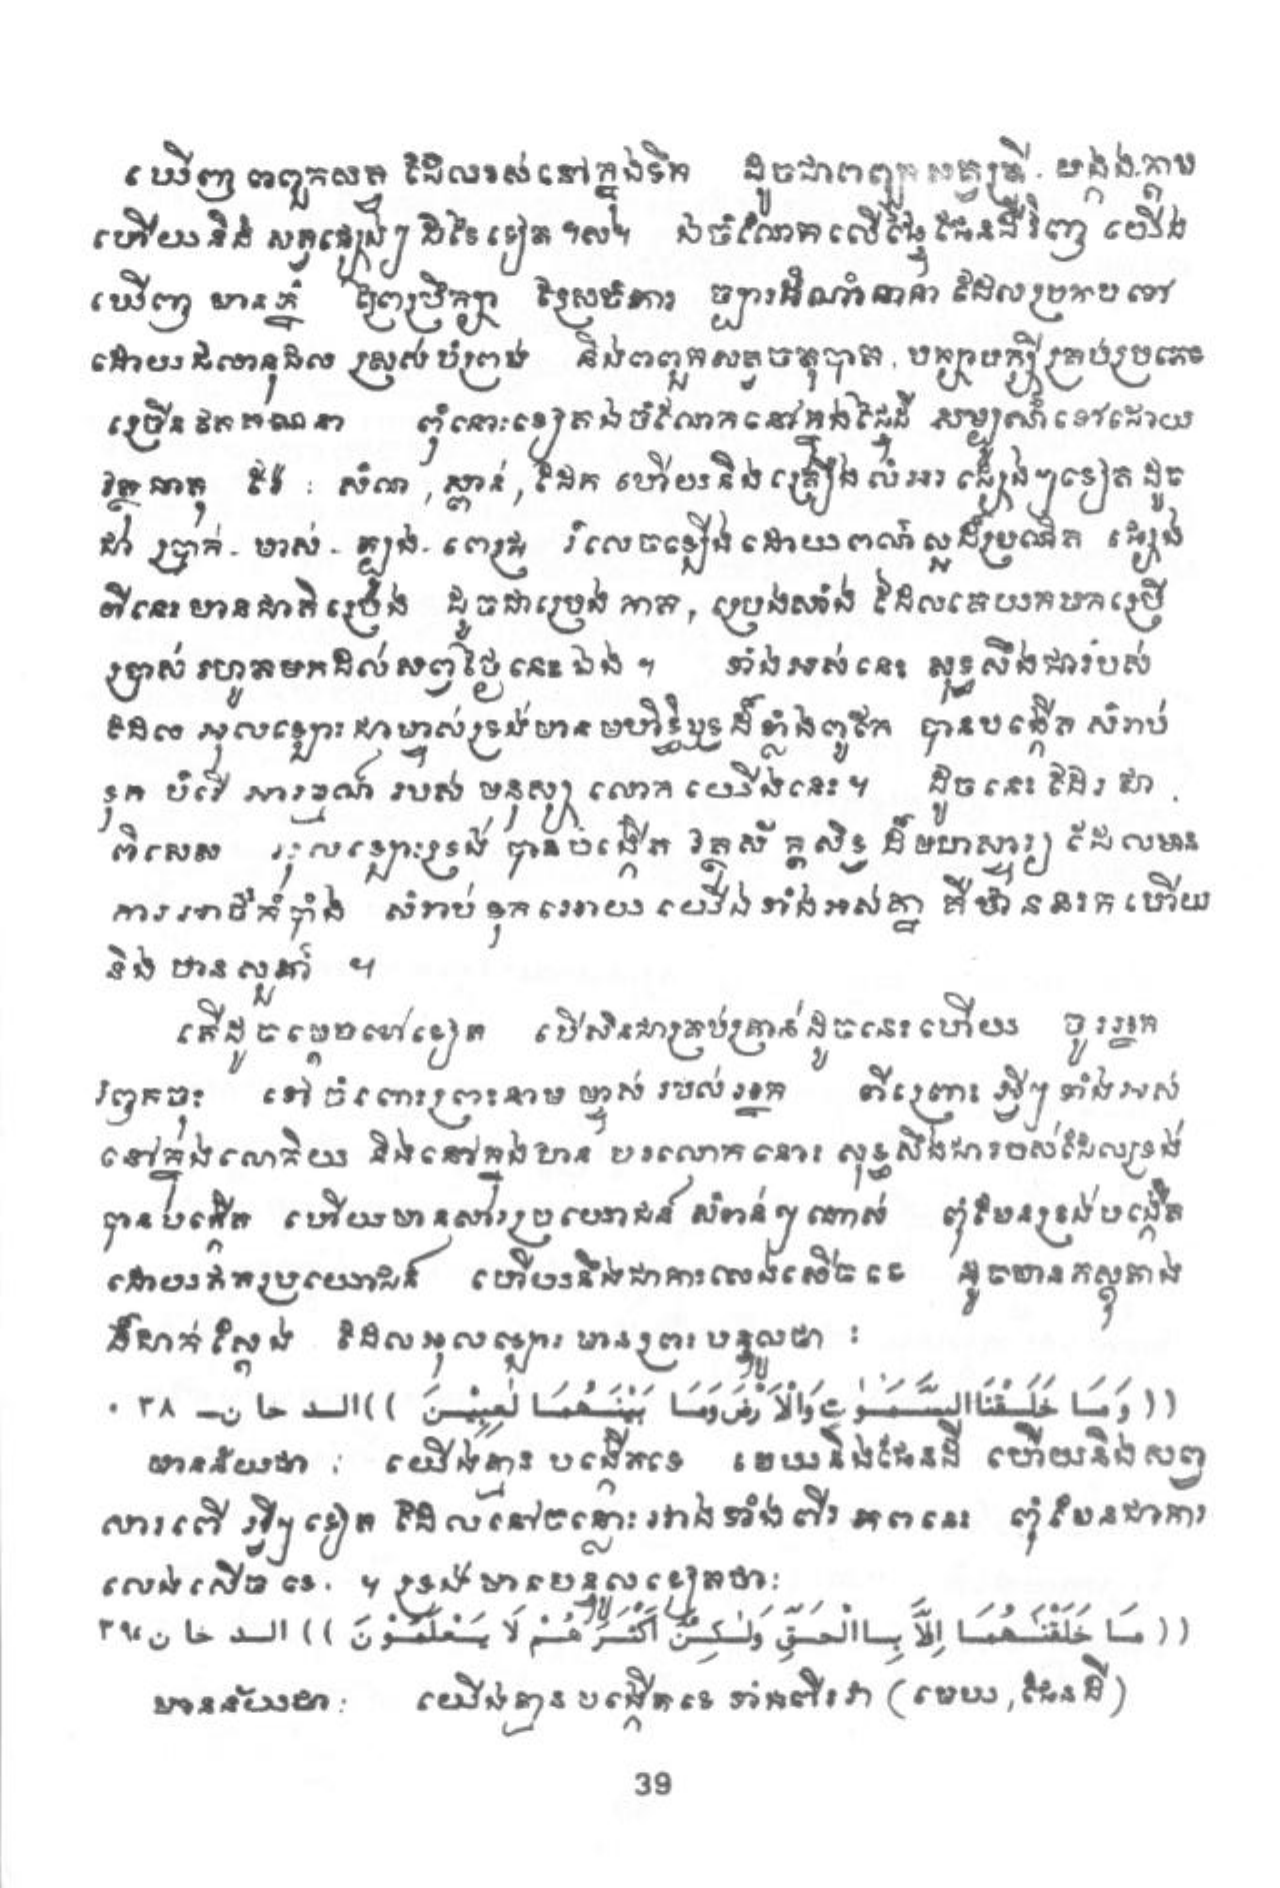 ឃើញ ពពួកសត្វ ដែលរស់នៅក្នុងទឹក ដូចជាពពួកសត្វត្រី. បង្កង់.ក្តាម
ហើយនិង សត្វផ្សេងៗ ដទៃទៀត ។ល។ ឯចំណែកលើផ្ទៃផែនដីវិញ យើង
ឃើញ មានភ្នំ ព្រៃព្រឹក្សា ស្រែចំការ ច្បារដំណាំនានា ដែលប្រកបទៅ
ដោយជំលានុផល ស្រស់បំព្រង និងពពួកសត្វចតុបាត. បក្សាបក្សីគ្រប់ប្រភេទ
ច្រើនឥតគណនា ពុំនោះទៀតឯចំណែកនៅក្នុងផ្ទៃដី សម្បូណ៌ទៅដោយ
វត្ថុធាតុ រ៉ែ : សំណ , ស្ពាន់ , ដែក ហើយនិងគ្រឿងលំអរ ផ្សេងៗទៀត ដូច
ជា ប្រាក់ - មាស់ - ត្បូង - ពេជ្រ រំលេចឡើងដោយពណ៌ស្អដ៏ប្រណិត ផ្សេង
ពីនេះមានជាតិប្រេង ដូចជាប្រេង កាត , ប្រេងសាំង ដែលគេយកមកប្រើ
ប្រាស់ រហូតមកដល់សព្វថ្ងៃនេះឯង ។ ទាំងអស់នេះ សុទ្ធសឹងជារបស់
ដែល អុលឡោះជាម្ចាស់ទ្រង់មានមហិទ្ធិឫទ្ធដ៏ខ្លាំងពូកែ បានបង្កើត សំរាប់
ទុក បំរើ អារម្មណ៍ របស់ មនុស្ស លោក យើងនេះ ។ ដូចនេះដែរ ជា
ពិសេស អុលឡោះទ្រង់ បានបង្កើត វត្ថុស័ក្តសិទ្ធ ដ៏មហាស្ចារ្យ ដែលមាន
ការអាថ៌កំបាំង សំរាប់ទុកអោយ យើងទាំងអស់គ្នា គឺឋាននរក ហើយ
និង ឋានសួគ៌ ។
តើដូចម្តេចទៅទៀត បើសិនជាគ្រប់គ្រាន់ដូចនេះហើយ ចូរអ្នក
រឭកចុះ ទៅចំពោះព្រះនាម ម្ចាស់ របស់អ្នក ពីព្រោះ អ្វីៗ ទាំងអស់
នៅក្នុងលោកិយ និងនៅក្នុងឋាន បរលោកនោះ សុទ្ធសឹងជារបស់ដែលទ្រង់
បានបង្កើត ហើយមានសារប្រយោជន៍ សំខាន់ៗណាស់ ពុំមែនទ្រង់បង្កើត
ដោយឥតប្រយោជន៍ ហើយនឹងជាការលេងសើចទេ ដូចមានភស្តុតាង
ដ៏ជាក់ស្តែង ដែលអុលឡោះ មានព្រះបន្ទូលថា :
(( وَمَا خَلَقْنَا السَّمَٰوٰتِ وَالْأَرْضَ وَمَا بَيْنَهُمَا لٰعِبِيْنَ )) الدخان ـ ٣٨ .
មានន័យថា : យើងគ្មានបង្កើតទេ មេឃនិងផែនដី ហើយនិងសព្វ
សារពើ អ្វីៗទៀត ដែលនៅចន្លោះរវាងទាំងពីរ ភពនេះ ពុំមែនជាការ
លេងសើចទេ. ។ ទ្រង់មានបន្ទូលទៀតថា:
(( مَا خَلَقْنَٰهُمَا إِلَّا بِاالْحَقِّ وَلٰكِنَّ أَكْثَرَهُمْ لَا يَعْلَمُوْنَ )) الدخان ٣٩
មានន័យថា: យើងគ្មានបង្កើតទេ ទាំងពីរវា ( មេឃ , ផែនដី )
39